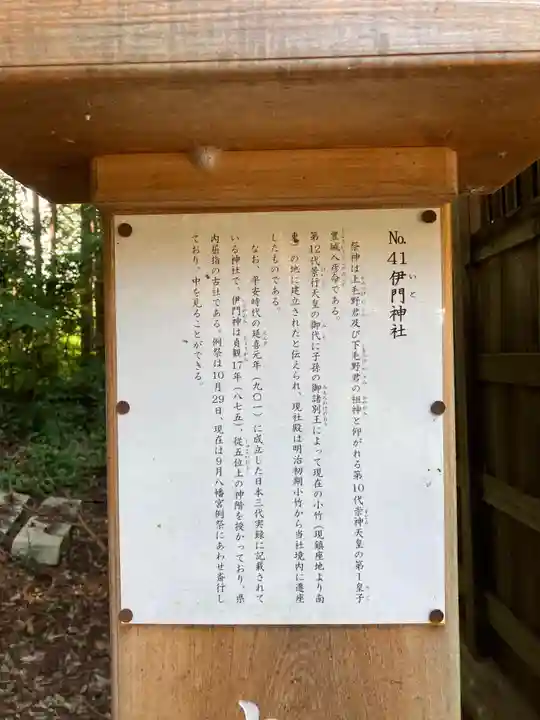 No. 41 伊門神社
いと
祭神は上毛野君及び下毛野君の祖神と仰がれる第10代崇神天皇の第1皇子
豊城入彦命である。
第12代景行天皇の御代に子孫の御諸別王によって現在の小竹（現鎮座地より南
東）の地に建立されたと伝えられ、現社殿は明治初期小竹から当社境内に遷座
したものである。
なお、平安時代の延喜元年（九〇一）に成立した日本三代実録に記載されて
いる神社で、伊門神は貞観17年（八七五）、従五位上の神階を授かっており、県
内屈指の古社である。例祭は10月29日、現在は9月八幡宮例祭にあわせ斎行し
ており、中を見ることができる。